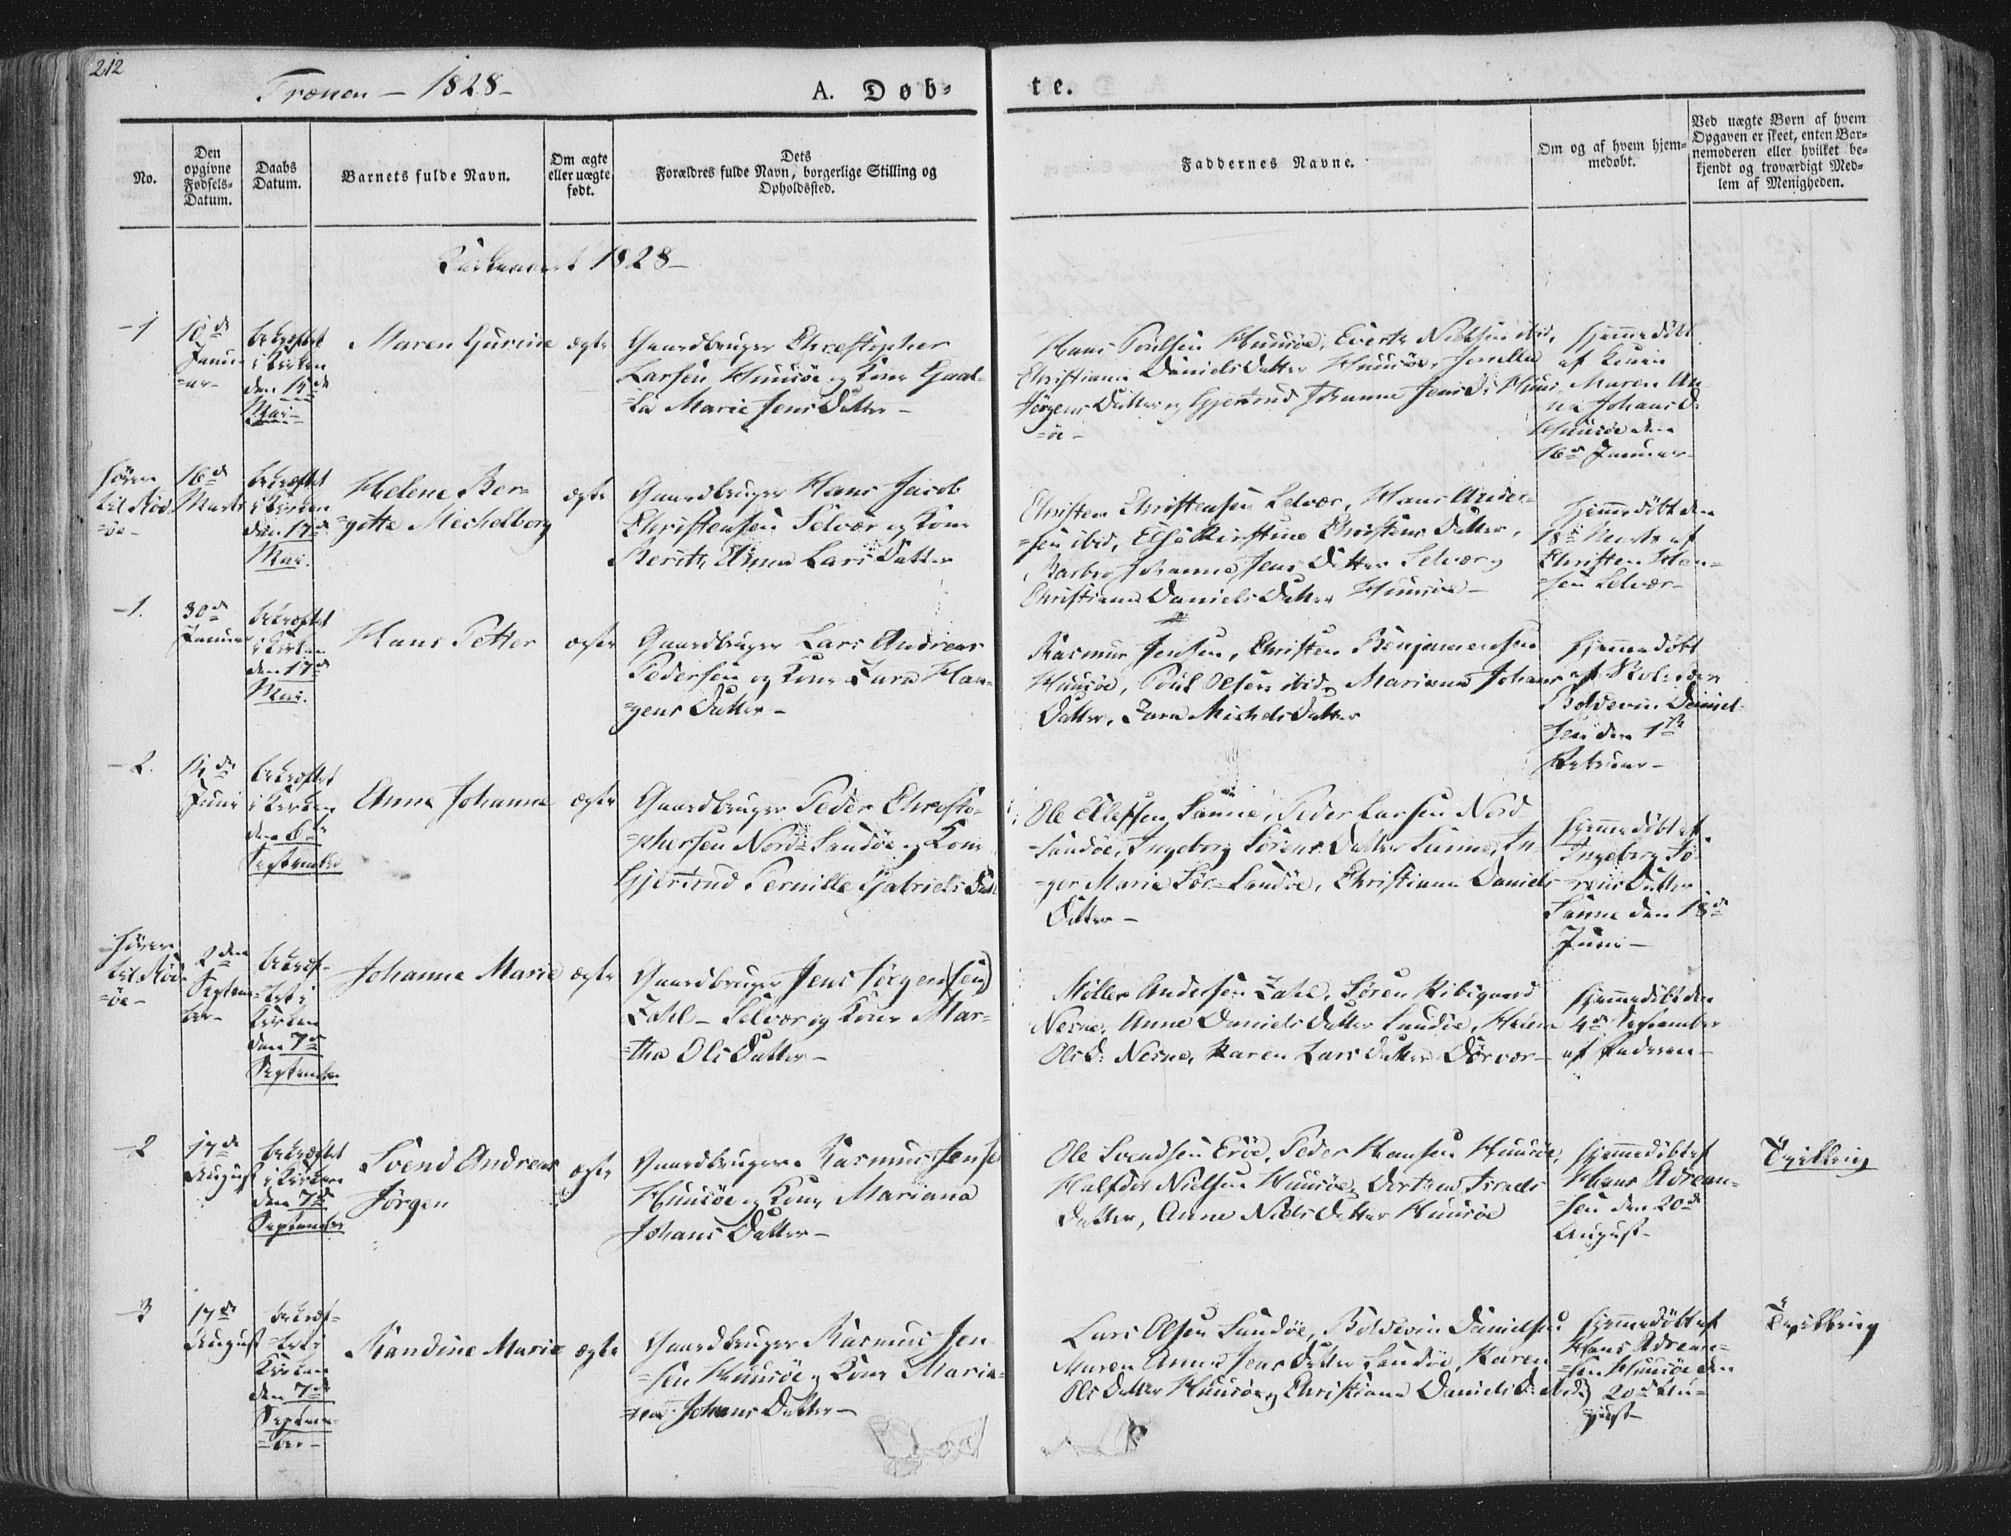 212
Trænen – 1828 –
A. Døb-
te.
No.
Den
opgivne
Fødsels-
Datum.
Daabs
Datum.
Barnets fulde Navn.
Om ægte
eller uægte
født.
Dets
Forældres fulde Navn, borgerlige Stilling og
Opholdssted.
Faddernes Navne.
Om og af hvem hjem-
medøbt.
Ved uægte Børn af hvem
Opgaven er skeet, enten Bar-
nemoderen eller hvilket be-
kjendt og troværdigt Med-
lem af Menigheden.
1828 –
– 1
10de
Janu
=ar–
bekræftet
i Kirken
den
Mai –
Maren Gurine
ægte
Gaardbruger Christopher
Larsen Huusøe og Kone
Marie Jens Datter –
Hans Poulsen Huusøe, Evert Nielsen ibid,
Christiana Daniels Datter Huusøe,
Jørgens Datter og Gjertrud Johanna Jens D: Huus
=øe –
Hjemmedøbt
af
Maren An
na Johans D:
Huusøe den
16de Januar
hører
til Rød
=øe –
16de
Marts
bekræftet
i Kirken
den 17de
Mai.
Helene Ber=
gitte Mechelborg
ægte
Gaardbruger Hans Jacob
Christensen Selvær og Kone
Berith Anna Lars Datter
Christen Christensen Selvær, Hans Ander=
=sen ibid, Else Kirstine Christens Datter,
Barbro Johanna Jens Datter Selvær og
Christiana Daniels Datter Huusøe –
Hjemmedøbt den
18de Marts af
Christen
=sen Selvær –
– 1.
30de
Januar
bekræftet
i Kirken
den 17de
Mai.
Hans Petter
ægte
Gaardbruger Lars Andreas
Pedersen og Kone Zara Haa=
=gens Datter –
Rasmus Jensen, Christen Benjamensen
Huusøe, Poul Olsen ibid, Mariana Johans
Datter, Zara Michels Datter
Hjemmedøbt
af
Boldevin Daniel=
sen den 1ste
Februar –
– 2.
de
Juni
bekræftet
i Kirken
den
September
Anne Johanna
ægte
Gaardbruger Peder Christo=
=phersen Nord=Sandøe og Kone
Gjertrud Pernille Gabriels Dat
Ole Ellefsen Sanne, Peder Larsen Nord
=Sandøe, Ingeborg Sørens Datter Sanne, In=
=ger Marie Sør=Sandøe, Christiana Daniels
Datter –
Hjemmedøbt af
Ingeborg Sø=
rens Datter
Sanne den 18de
Juni –
hører
til Rød
=øe –
2den
Septem=
ber –
bekræf=
tet i
Kirken
den 7de
September
Johanna Marie
ægte
Gaardbruger Jens Jørgen(sen)
Zahl – Selvær og Kone Mar=
=tha Ols Datter –
Møller Andersen Zahl, Søren
Nesne, Anne Daniels Datter Sandøe,
Ols D: Nesne, Karen Lars Datter Dørvær –
Hjemmedøbt den
4de September
af Faderen –
– 2
17de
August
bekræftet
i Kirken
den 7de
September
Svend Andreas
Jørgen
ægte
Gaardbruger Rasmus Jense
Huusøe og Kone Mariana
Johans Datter –
Ole Svendsen Erøe, Peder Hansen Huusøe,
Halfdor Nielsen Huusøe,
Datter, Anne Niels Datter Huusøe
Hjemmedøbt af
Hans Adrean=
sen den 20de
August –
Tvilling
– 3
17de
August
bekræf=
=tet i
Kirken
den 7de
Septem=
=ber –
Randine Marie
ægte
Gaardbruger Rasmus Jen
=sen Huusøe og Kone Maria=
=na Johans Datter –
Lars Olsen Sandøe, Boldevin Danielsen
Maren Anna Jens Datter Sandøe, Karen
Ols Datter Huusøe og Christiana Daniels D: ibid
Hjemmedøbt af
Hans Adrean=
=sen Huusøe den
20de Au=
gust –
Tvilling